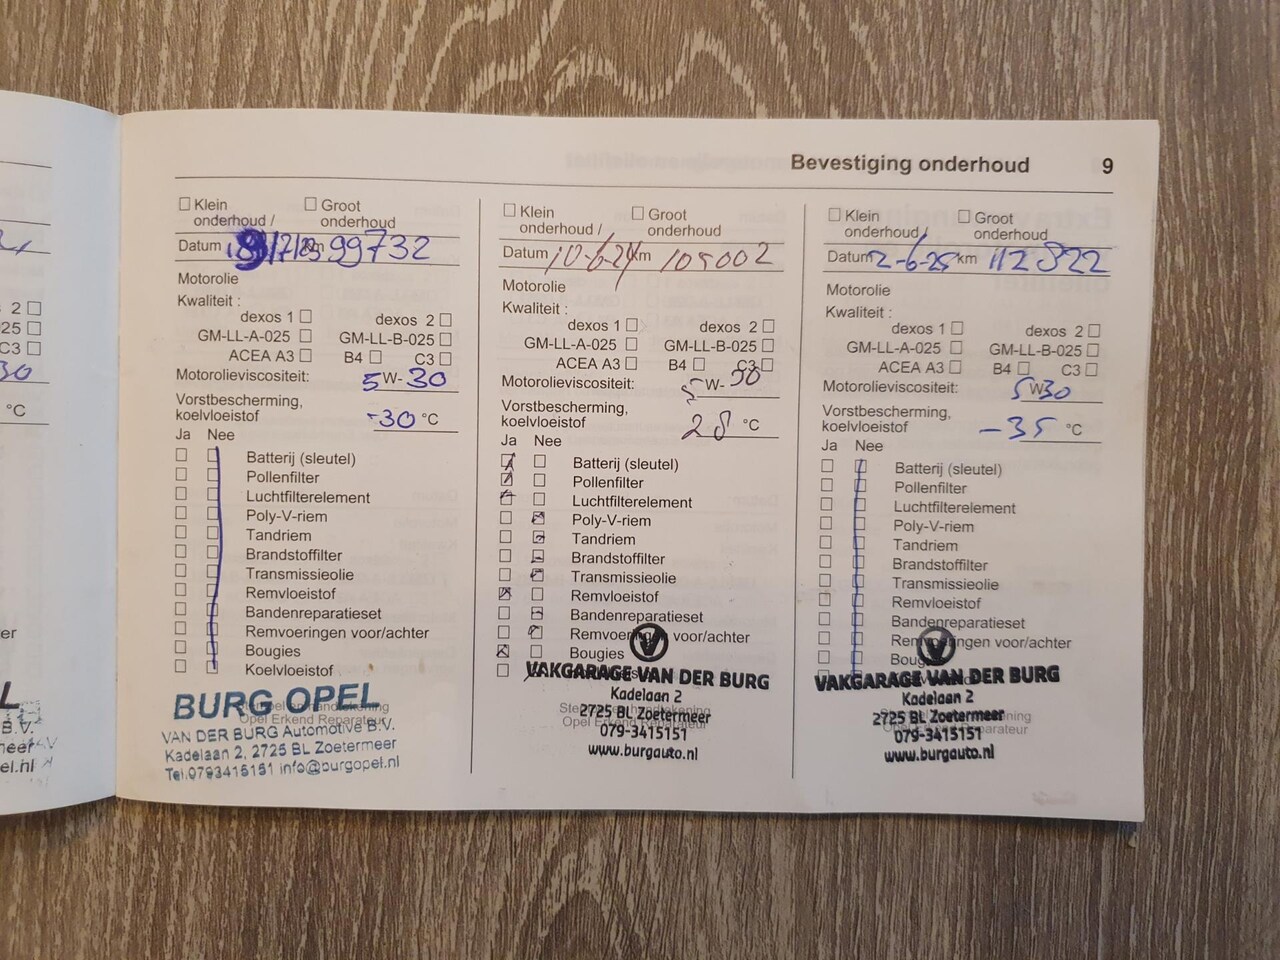 Bevestiging onderhoud 9
Klein onderhoud / Groot onderhoud
Datum km 99732
Motorolie
Kwaliteit :
dexos 1 dexos 2
GM-LL-A-025 GM-LL-B-025
ACEA A3 B4 C3
Motorolieviscositeit: 5W-30
Vorstbescherming,
koelvloeistof -30 °C
Ja Nee
Batterij (sleutel)
Pollenfilter
Luchtfilterelement
Poly-V-riem
Tandriem
Brandstoffilter
Transmissieolie
Remvloeistof
Bandenreparatieset
Remvoeringen voor/achter
Bougies
Koelvloeistof
BURG OPEL
Opel Erkend Reparateur
VAN DER BURG Automotive B.V.
Kadelaan 2, 2725 BL Zoetermeer
Tel.0793415151 info@burgopel.nl
Klein onderhoud / Groot onderhoud
Datum 10-6-24 km 105002
Motorolie
Kwaliteit :
dexos 1 dexos 2
GM-LL-A-025 GM-LL-B-025
ACEA A3 B4 C3
Motorolieviscositeit: 5W-30
Vorstbescherming,
koelvloeistof 28 °C
Ja Nee
Batterij (sleutel)
Pollenfilter
Luchtfilterelement
Poly-V-riem
Tandriem
Brandstoffilter
Transmissieolie
Remvloeistof
Bandenreparatieset
Remvoeringen voor/achter
Bougies
VAKGARAGE VAN DER BURG
Kadelaan 2
2725 BL Zoetermeer
Opel Erkend Reparateur
079-3415151
www.burgauto.nl
Klein onderhoud / Groot onderhoud
Datum 2-6-25 km 112822
Motorolie
Kwaliteit :
dexos 1 dexos 2
GM-LL-A-025 GM-LL-B-025
ACEA A3 B4 C3
Motorolieviscositeit: 5W30
Vorstbescherming,
koelvloeistof -35 °C
Ja Nee
Batterij (sleutel)
Pollenfilter
Luchtfilterelement
Poly-V-riem
Tandriem
Brandstoffilter
Transmissieolie
Remvloeistof
Bandenreparatieset
Remvoeringen voor/achter
VAKGARAGE VAN DER BURG
Kadelaan 2
2725 BL Zoetermeer
079-3415151
www.burgauto.nl